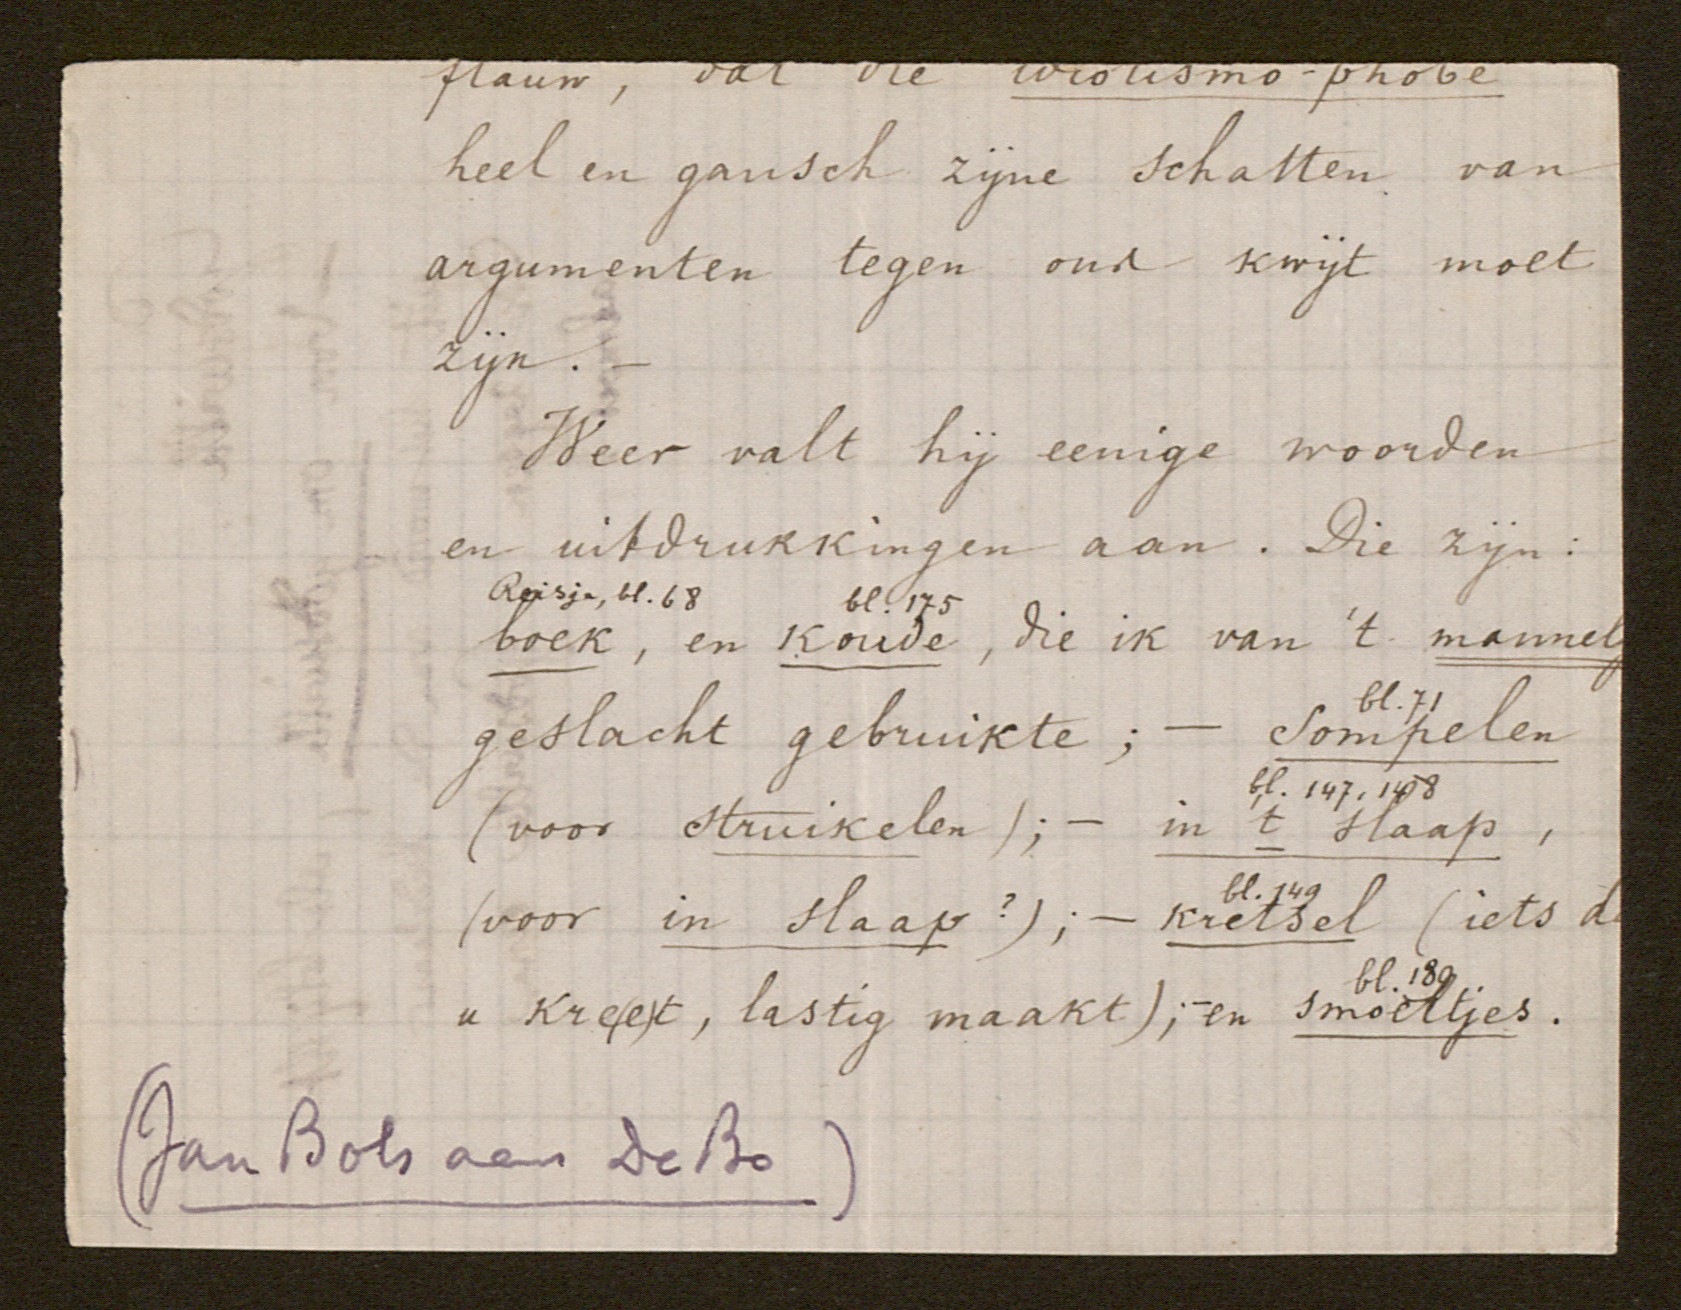 flauw, dat die idiotismo-phobe
heel en gansch zijne schatten van
argumenten tegen ons kwijt moet
zijn. –
Weer valt hij eenige woorden
en uitdrukkingen aan. Die zijn:
Reisje, bl. 68 bl. 175
boek, en koude, die ik van 't mannel
geslacht gebruikte; – bl. 71
Sompelen
bl. 147, 148
(voor struikelen); – in 't slaap,
bl. 149
(voor in slaap?); – kretsel (iets d
bl. 189
u kre(e)t, lastig maakt); – en smoeltjes.
(Jan Bols aan De Bo)